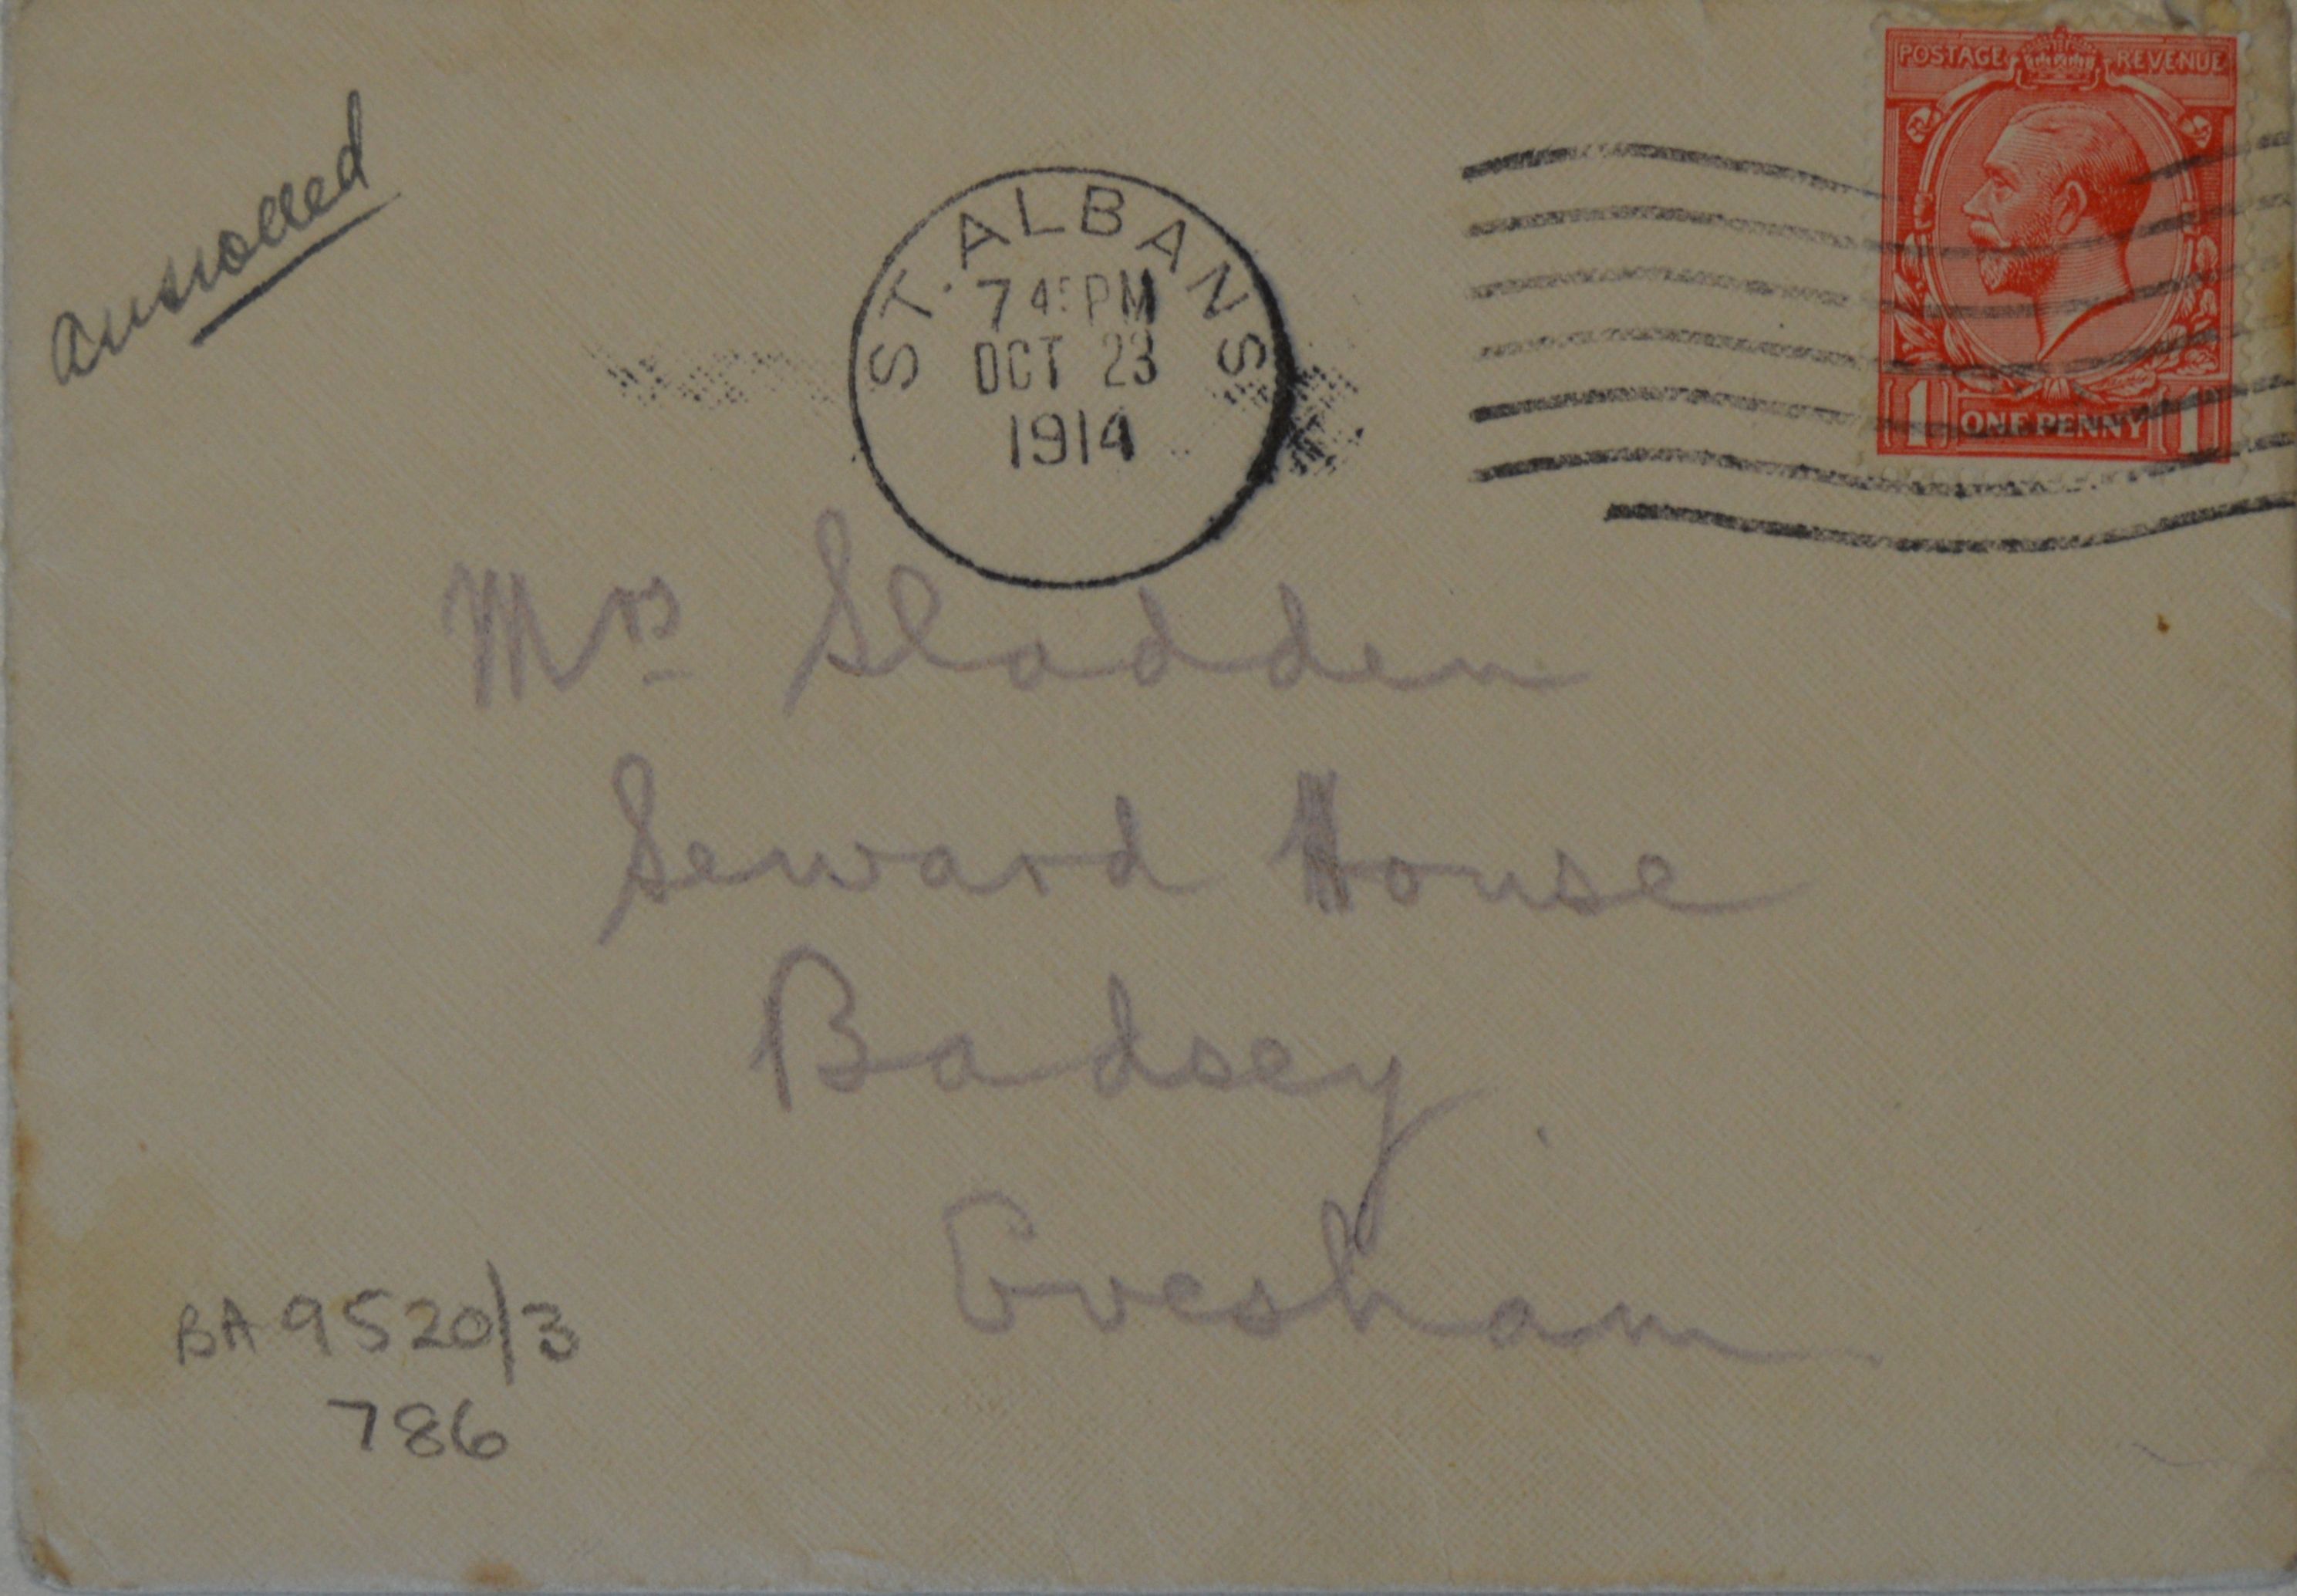 POSTAGE REVENUE
answered
ST. ALBANS
7 45 PM
OCT 23
1914
1 ONE PENNY 1
Mrs Sladden
Seward House
Badsey
Evesham
BA 9520/3
786